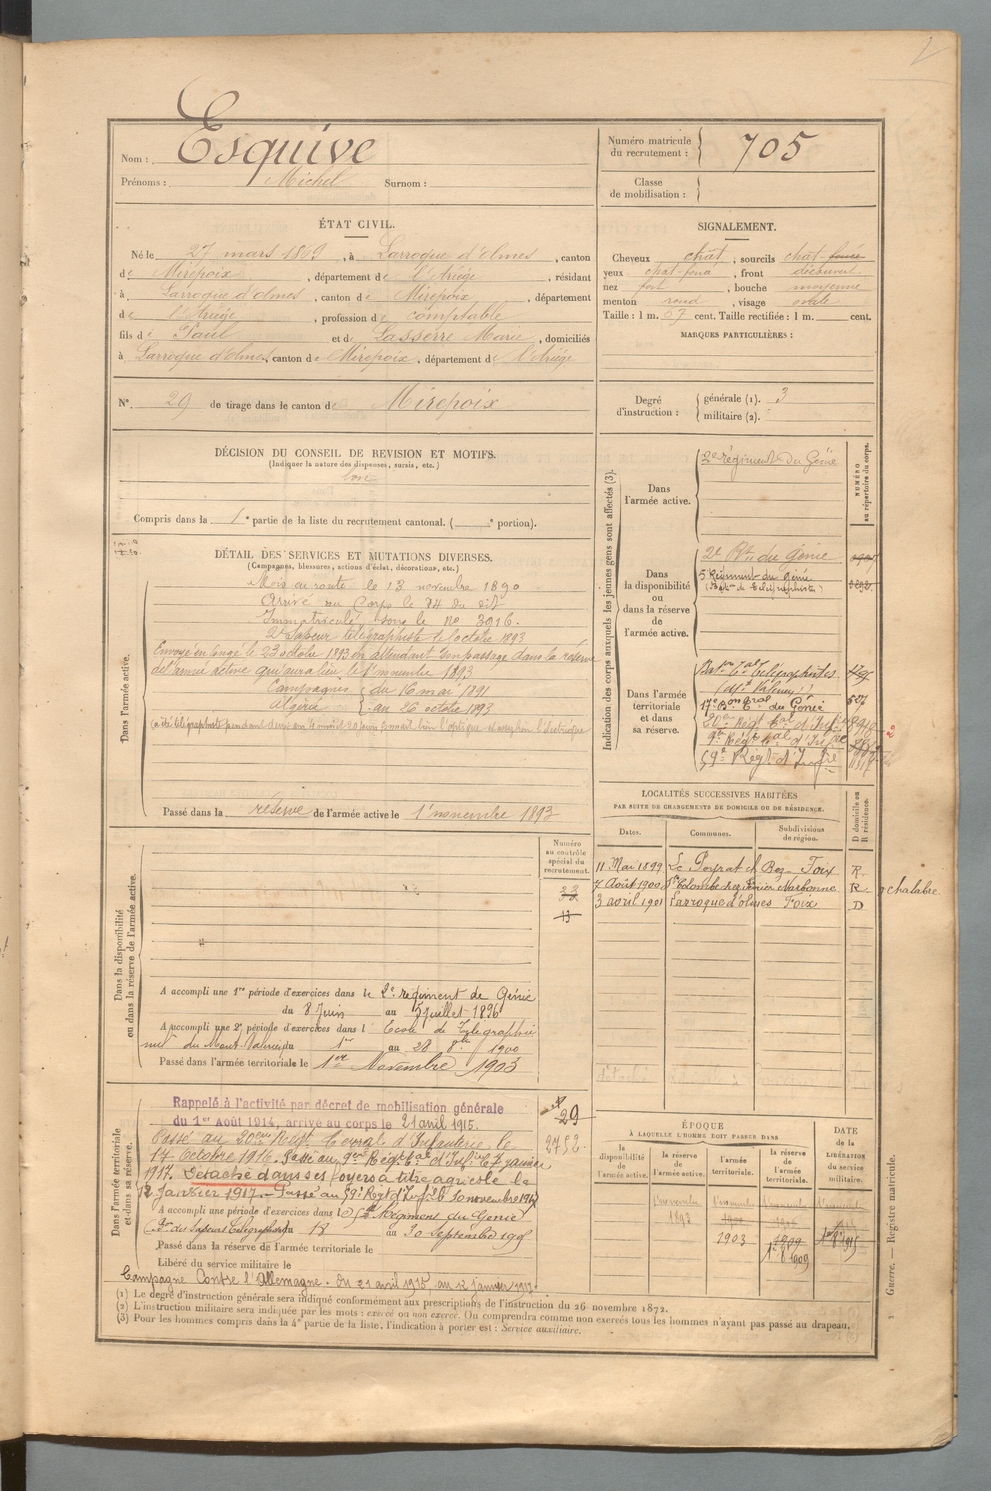 Nom : Esquive
Prénoms : Michel Surnom :
Numéro matricule du recrutement : 705
Classe de mobilisation :
ÉTAT CIVIL.
Né le 27 mars 1869, à Larroque d'olmes, canton
de Mirepoix, département de l'Ariège, résidant
à Larroque d'olmes, canton de Mirepoix, département
de l'Ariège, profession de comptable
fils de Paul et de Lasserre Marie, domiciliés
à Larroque d'olmes, canton de Mirepoix, département de l'Ariège
N° 29 de tirage dans le canton de Mirepoix
SIGNALEMENT.
Cheveux chât, sourcils chât-foncé
yeux chât-foncé, front découvert
nez fort, bouche moyenne
menton rond, visage ovale
Taille : 1 m. 67 cent. Taille rectifiée : 1 m. cent.
MARQUES PARTICULIÈRES :
Degré d'instruction : générale (1). 3
militaire (2).
DÉCISION DU CONSEIL DE REVISION ET MOTIFS.
(Indiquer la nature des dispenses, sursis, etc.)
bon
Compris dans la 1e partie de la liste du recrutement cantonal. ( e portion).
DÉTAIL DES SERVICES ET MUTATIONS DIVERSES.
(Campagnes, blessures, actions d'éclat, décorations, etc.)
Dans l'armée active.
Mis en route le 13 novembre 1890
Arrivé au Corps le 14 du dit
Immatriculé sous le N° 3016.
2e Sapeur télégraphiste le 1 octobre 1893
Envoyé en congé le 23 octobre 1893 en attendant son passage dans la réserve
de l'armée active qui aura lieu le 1er novembre 1893
Campagnes du 16 mai 1891
Algérie au 26 octobre 1893
Passé dans la réserve de l'armée active le 1er novembre 1893
Indication des corps auxquels les jeunes gens sont affectés (3).
NUMÉRO au répertoire du corps.
Dans l'armée active.
2e régiment du Génie
Dans la disponibilité ou dans la réserve de l'armée active.
2e Rt. du Génie
5e Régiment du Génie
(Bat.on de Télégraphistes)
Dans l'armée territoriale et dans sa réserve.
Bat.on T.al Télégraphistes
(Mt Valérien)
17e B.on T.al du Génie 527
20e Régt T.al d'Inf.ie
9e Régt T.al d'Inf.ie
59e Régt d'Inf.ie
LOCALITÉS SUCCESSIVES HABITÉES
PAR SUITE DE CHANGEMENTS DE DOMICILE OU DE RÉSIDENCE.
D domicile ou R résidence.
Dates. Communes. Subdivisions de région.
11 Mai 1899 Le Peyrat Foix R
7 Août 1900 Ste Colombe Narbonne R chalabre
3 avril 1901 Larroque d'olmes Foix D
Dans la disponibilité ou dans la réserve de l'armée active.
Numéro au contrôle spécial du recrutement.
A accompli une 1re période d'exercices dans le 2e régiment de Génie
du 8 Juin au 5 juillet 1896
A accompli une 2e période d'exercices dans l'Ecole de Télégraphie
mre du Mont-Valérien du 1er au 28 8bre 1900
Passé dans l'armée territoriale le 1er Novembre 1903
Dans l'armée territoriale et dans sa réserve.
29
2752
Rappelé à l'activité par décret de mobilisation générale
du 1er Août 1914, arrivé au corps le 21 avril 1915.
Passé au 20ème Régt Terral d'Infanterie le
17 Octobre 1916. Passé au 9ème Régt T.al d'Inf.ie le 7 janvier
1917. Détaché dans ses foyers à titre agricole le
12 Janvier 1917. Passé au 59e Régt d'Inf.ie le 10 novembre 1917
A accompli une période d'exercices dans le 5e Régiment du Génie
du 18 au 30 Septembre
Passé dans la réserve de l'armée territoriale le
Libéré du service militaire le
Campagne Contre l'Allemagne. du 21 avril 1915 au 12 janvier 1917.
ÉPOQUE
À LAQUELLE L'HOMME DOIT PASSER DANS
la disponibilité de l'armée active. la réserve de l'armée active. l'armée territoriale. la réserve de l'armée territoriale.
DATE de la LIBÉRATION du service militaire.
1893 1903 1909
1909
Guerre. — Registre matricule.
(1) Le degré d'instruction générale sera indiqué conformément aux prescriptions de l'instruction du 26 novembre 1872.
(2) L'instruction militaire sera indiquée par les mots : exercé ou non exercé. On comprendra comme non exercés tous les hommes n'ayant pas passé au drapeau.
(3) Pour les hommes compris dans la 4e partie de la liste, l'indication à porter est : Service auxiliaire.